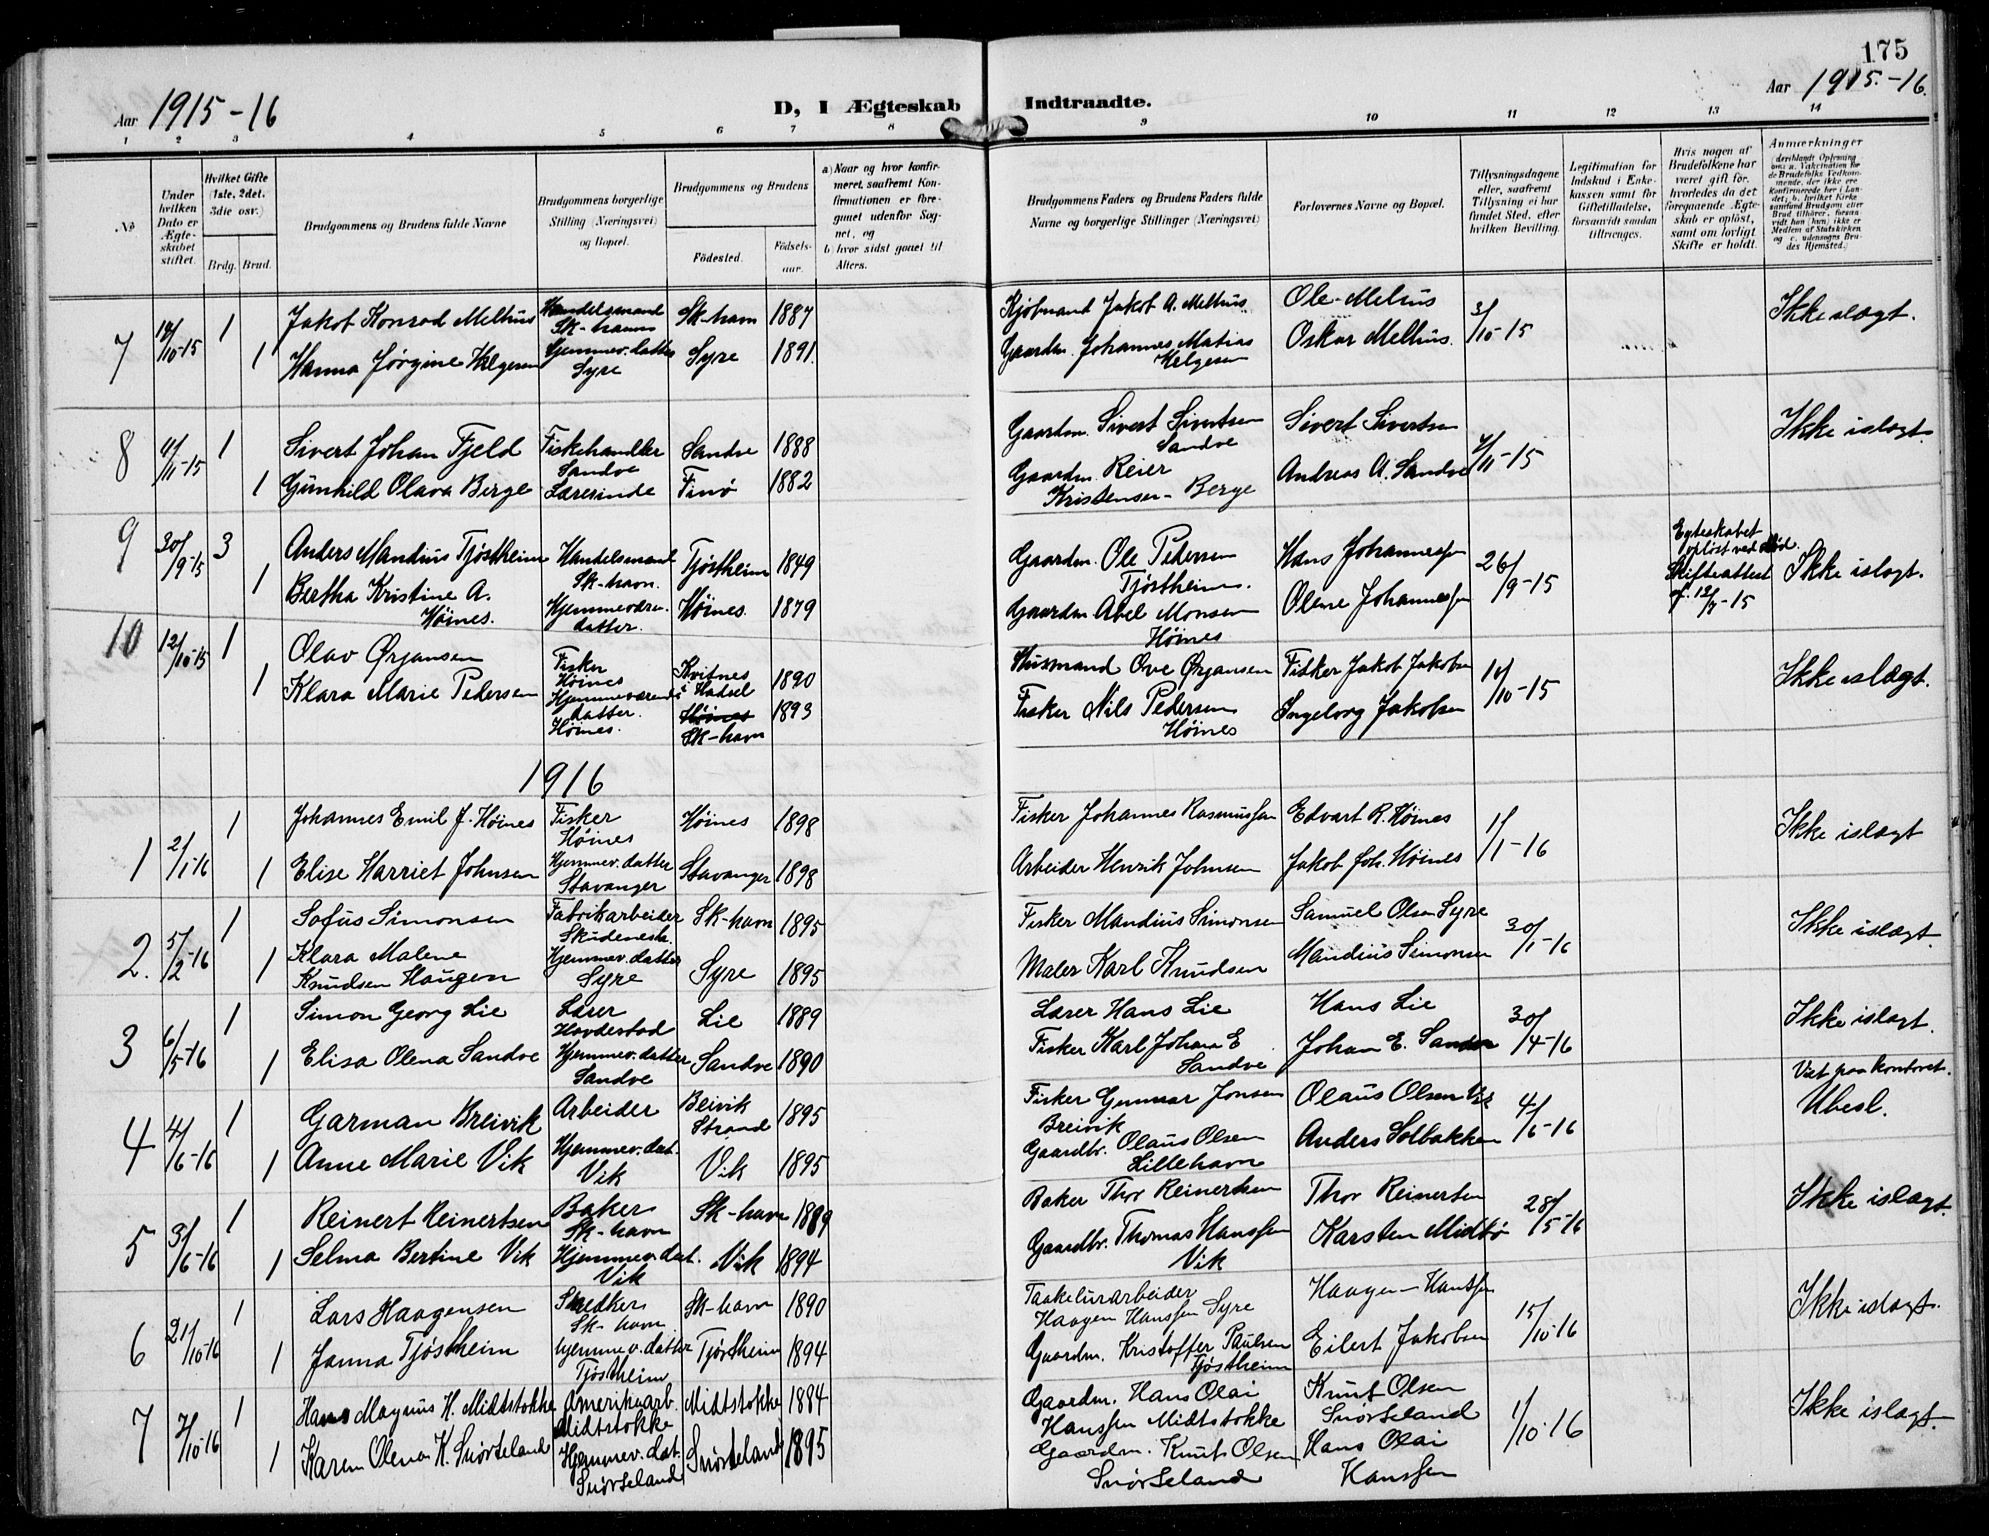 175
Aar 1915-16
D, I Ægteskab Indtraadte.
Aar 1915.-16.
1 2 3 4 5 6 7 8 9 10 11 12 13 14
No
Under hvilken Dato er Ægteskabet stiftet.
Hvilket Gifte (1ste, 2det, 3die osv.)
Brdg. Brud.
Brudgommens og Brudens fulde Navne
Brudgommens borgerlige Stilling (Næringsvei) og Bopæl.
Brudgommens og Brudens
Födested.
Födselsaar.
a) Naar og hvor konfirmeret, saafremt Konfirmationen er foregaaet udenfor Sognet, og
b) hvor sidst gaaet til Alters.
Brudgommens Faders og Brudens Faders fulde Navne og borgerlige Stillinger (Næringsvei)
Forlovernes Navne og Bopæl.
Tillysningsdagene eller, saafremt Tillysning ei har fundet Sted, efter hvilken Bevilling.
Legitimation for Indskud i Enkekassen samt for Giftetilladelse, forsaavidt saadan tiltrænges.
Hvis nogen af Brudefolkene har været gift før, hvorledes da det foregaaende Ægteskab er oplöst, samt om lovligt Skifte er holdt.
Anmærkninger
7 10-15 1 Jakob Konrad Melhus Handelsmand Sk-havn Sk-havn 1887 Kjøbmand Jakob A. Melhus Ole Melhus 3/10-15 Ikke islægt.
1 Hanna Jørgine Helgesen Hjemmev. datter Syre Syre 1891. Gaardm. Johannes Matias Helgesen Oskar Melhus.
8 4/11-15 1 Sivert Johan Fjeld Fiskehandler Sandve Sandve 1888 Gaardm. Sivert Sivertsen Sandve Sivert Sivertsen 11-15 Ikke islægt
1 Gunhild Olava Berge Lærerinde Finö 1882 Gaardm. Reier Kristensen Berge Andreas A. Sandve
9 30/9-15 3 Anders Mandius Tjøstheim Handelsmand Sk-havn. Tjøstheim 1849 Gaardm. Ole Pedersen Tjøstheim. Hans Johannessen 26/9-15 Egteskabet opløst ved død. Skifteattest af 12/7-15 Ikke islægt.
1 Bertha Kristine A. Høines. Hjemmeværn. datter. Høines. 1879 Gaardm Abel Monsen Høines Olene Johannessen
10 12/10-15 1 Olav Ørjansen Fisker Høines Kvitnes i Hadsel 1890 Husmand Ove Ørjansen Fisker Jakob Jakobsen 10/10-15 Ikke islægt.
1 Klara Marie Pedersen Hjemmeværende datter. Høines. Høines Sk-havn 1893 Fisker Nils Pedersen Høines Ingeborg Jakobsen
1916
1 2/1-16 1 Johannes Emil J. Høines Fisker Høines Høines 1898 Fisker Johannes Rasmussen Edvart R. Høines 1/1-16 Ikke islægt
1 Elise Harriet Johnsen Hjemmev. datter Stavanger Stavanger 1898 Arbeider Henrik Johnsen Jakob Joh. Høines
2. 5/2-16 1 Sofus Simonsen Fabrikarbeider Skudenesh. Sk-havn 1895 Fisker Mandius Simonsen Samuel Olsen Syre 30/1-16 Ikke islægt.
1 Klara Malene Knudsen Haugen Hjemmev. datter Syre Syre 1895 Maler Karl Knudsen Mandius Simonsen
3 6/5-16 1 Simon Georg Lie Lærer Havdestad Lie 1889 Lærer Hans Lie Hans Lie 30/4-16 Ikke islægt.
1 Elisa Olena Sandve Hjemmev. datter Sandve Sandve 1890 Fisker Karl Johan E Sandve Johan E. Sandve
4 4/6-16 1 Garman Breivik Arbeider Beivik Strand 1895 Fisker Gunnar Jonsen Breivik Olaus Olsen Vik 4/6-16 Viet paa kontoret. Ubesl.
1 Anne Marie Vik Hjemmev. dat. Vik Vik 1895 Gaardbr. Olaus Olsen Lillehavn Anders Solbakken
5 3/6-16 1 Reinert Reinertsen Baker Sk-havn Sk-havn 1889 Baker Thor Reinertsen Thor Reinertsen 28/5-16 Ikke islægt.
1 Selma Bertine Vik Hjemmev. dat. Vik Vik 1894 Gaardbr. Thomas Hanssen Vik Karsten Midtbø
6 21/10-16 1 Lars Haagensen Snedker Sk-havn Sk-havn 1890 Taakelurarbeider Haagen Hanssen Syre Haagen Hanssen 15/10-16 Ikke islægt.
1 Janna Tjøstheim hjemmev. datter Tjøstheim Tjøstheim 1894 Gaardm. Kristoffer Paulsen Tjøstheim Eilert Jakobsen
7 7/10-16 1 Hans Magnus H. Midtstokke Amerikaarb. Midtstokke Midtstokke 1884 Gaardm. Hans Olai Hanssen Midtstokke Knut Olsen Snørteland 1/10-16 Ikke islægt.
1 Karen Olena K. Snørteland Hjemmev. dat. Snørteland Snørteland 1895 Gaardm. Knut Olsen Snørteland Hans Olai Hanssen